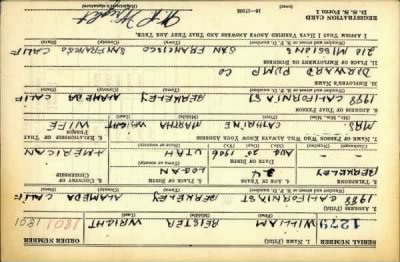 SERIAL NUMBER
1. NAME (Print)
ORDER NUMBER
1279
WILLIAM REISTER WRIGHT
1801 1801
(First) (Middle) (Last)
2. ADDRESS (Print)
1988 CALIFORNIA ST BERKELEY ALAMEDA CALIF
3. TELEPHONE
4. AGE IN YEARS
5. PLACE OF BIRTH
6. COUNTRY OF CITIZENSHIP
34
LOGAN
BERKELEY
DATE OF BIRTH
AUG 30 1906
UTA
AMERICAN
7. NAME OF PERSON WHO WILL ALWAYS KNOW YOUR ADDRESS
8. RELATIONSHIP OF THAT PERSON
MRS CATHRINE MARTHA WRIGHT WIFE
(Mr., Mrs., Miss) (First) (Middle) (Last)
9. ADDRESS OF THAT PERSON
1988 CALIFORNIA ST BERKELEY ALAMEDA CALIF
10. EMPLOYER'S NAME
PUMP CO
11. PLACE OF EMPLOYMENT OR BUSINESS
210 MISSION S SAN FRANCISCO SAN FRANCISCO CALIF
I AFFIRM THAT I HAVE VERIFIED ABOVE ANSWERS AND THAT THEY ARE TRUE.
REGISTRATION CARD
D. S. S. Form 1